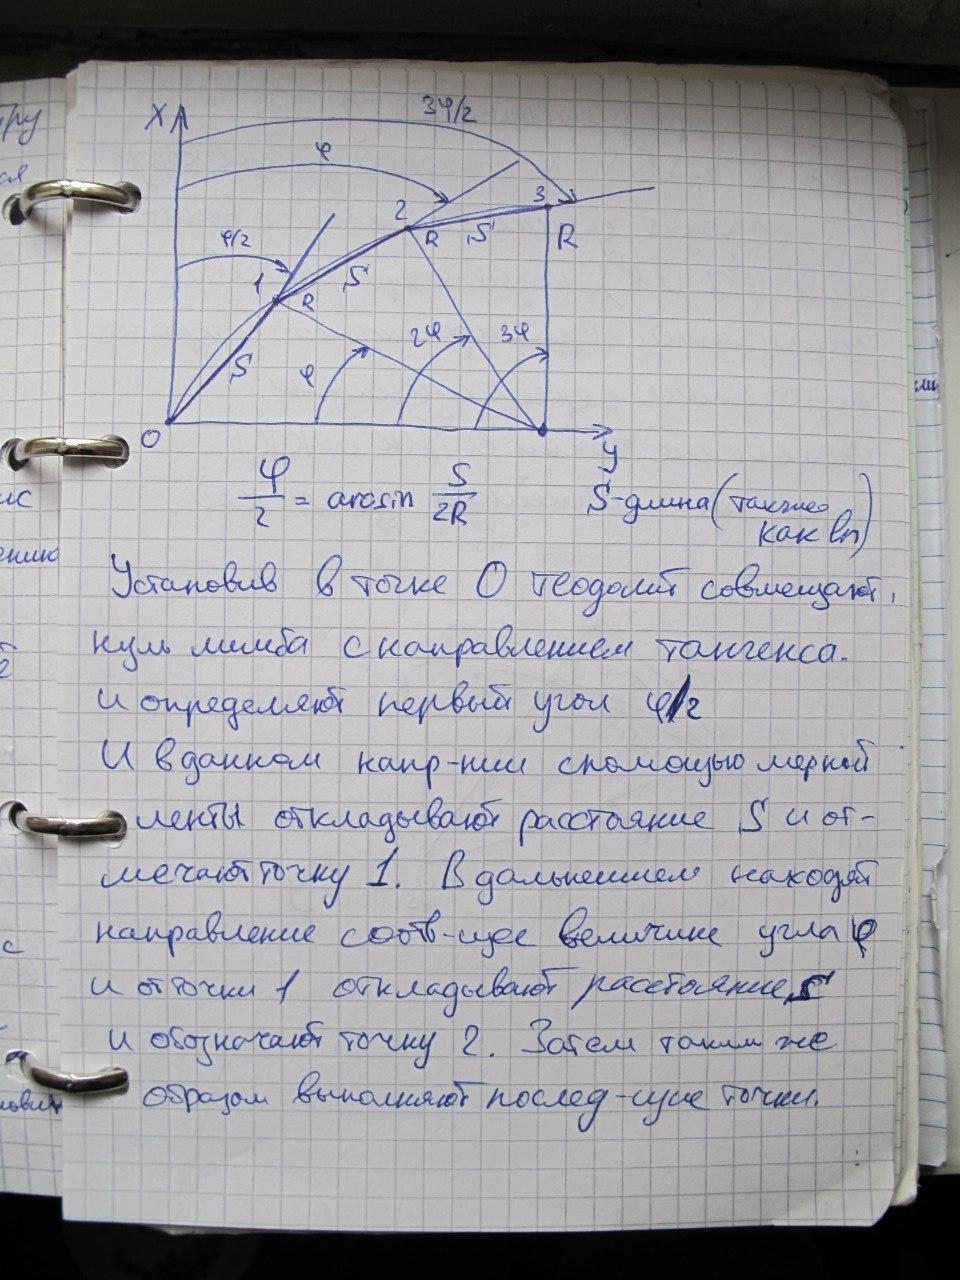 X
3φ/2
φ
φ/2
1
2
3
R
S
R
S
R
S
φ
2φ
3φ
O
y
φ/2 = arcsin S/2R
S-длина (также
как ln)
Установив в точке О теодолит совмещают,
нуль лимба с направлением тангенса.
и определяют первый угол φ/2
И в данном напр-нии с помощью мерной
ленты откладывают расстояние S и от-
мечают точку 1. В дальнейшем находят
направление соотв-щее величине угла φ
и от точки 1 откладывают расстояние S
и обозначают точку 2. Затем таким же
образом выполняют послед-щие точки.